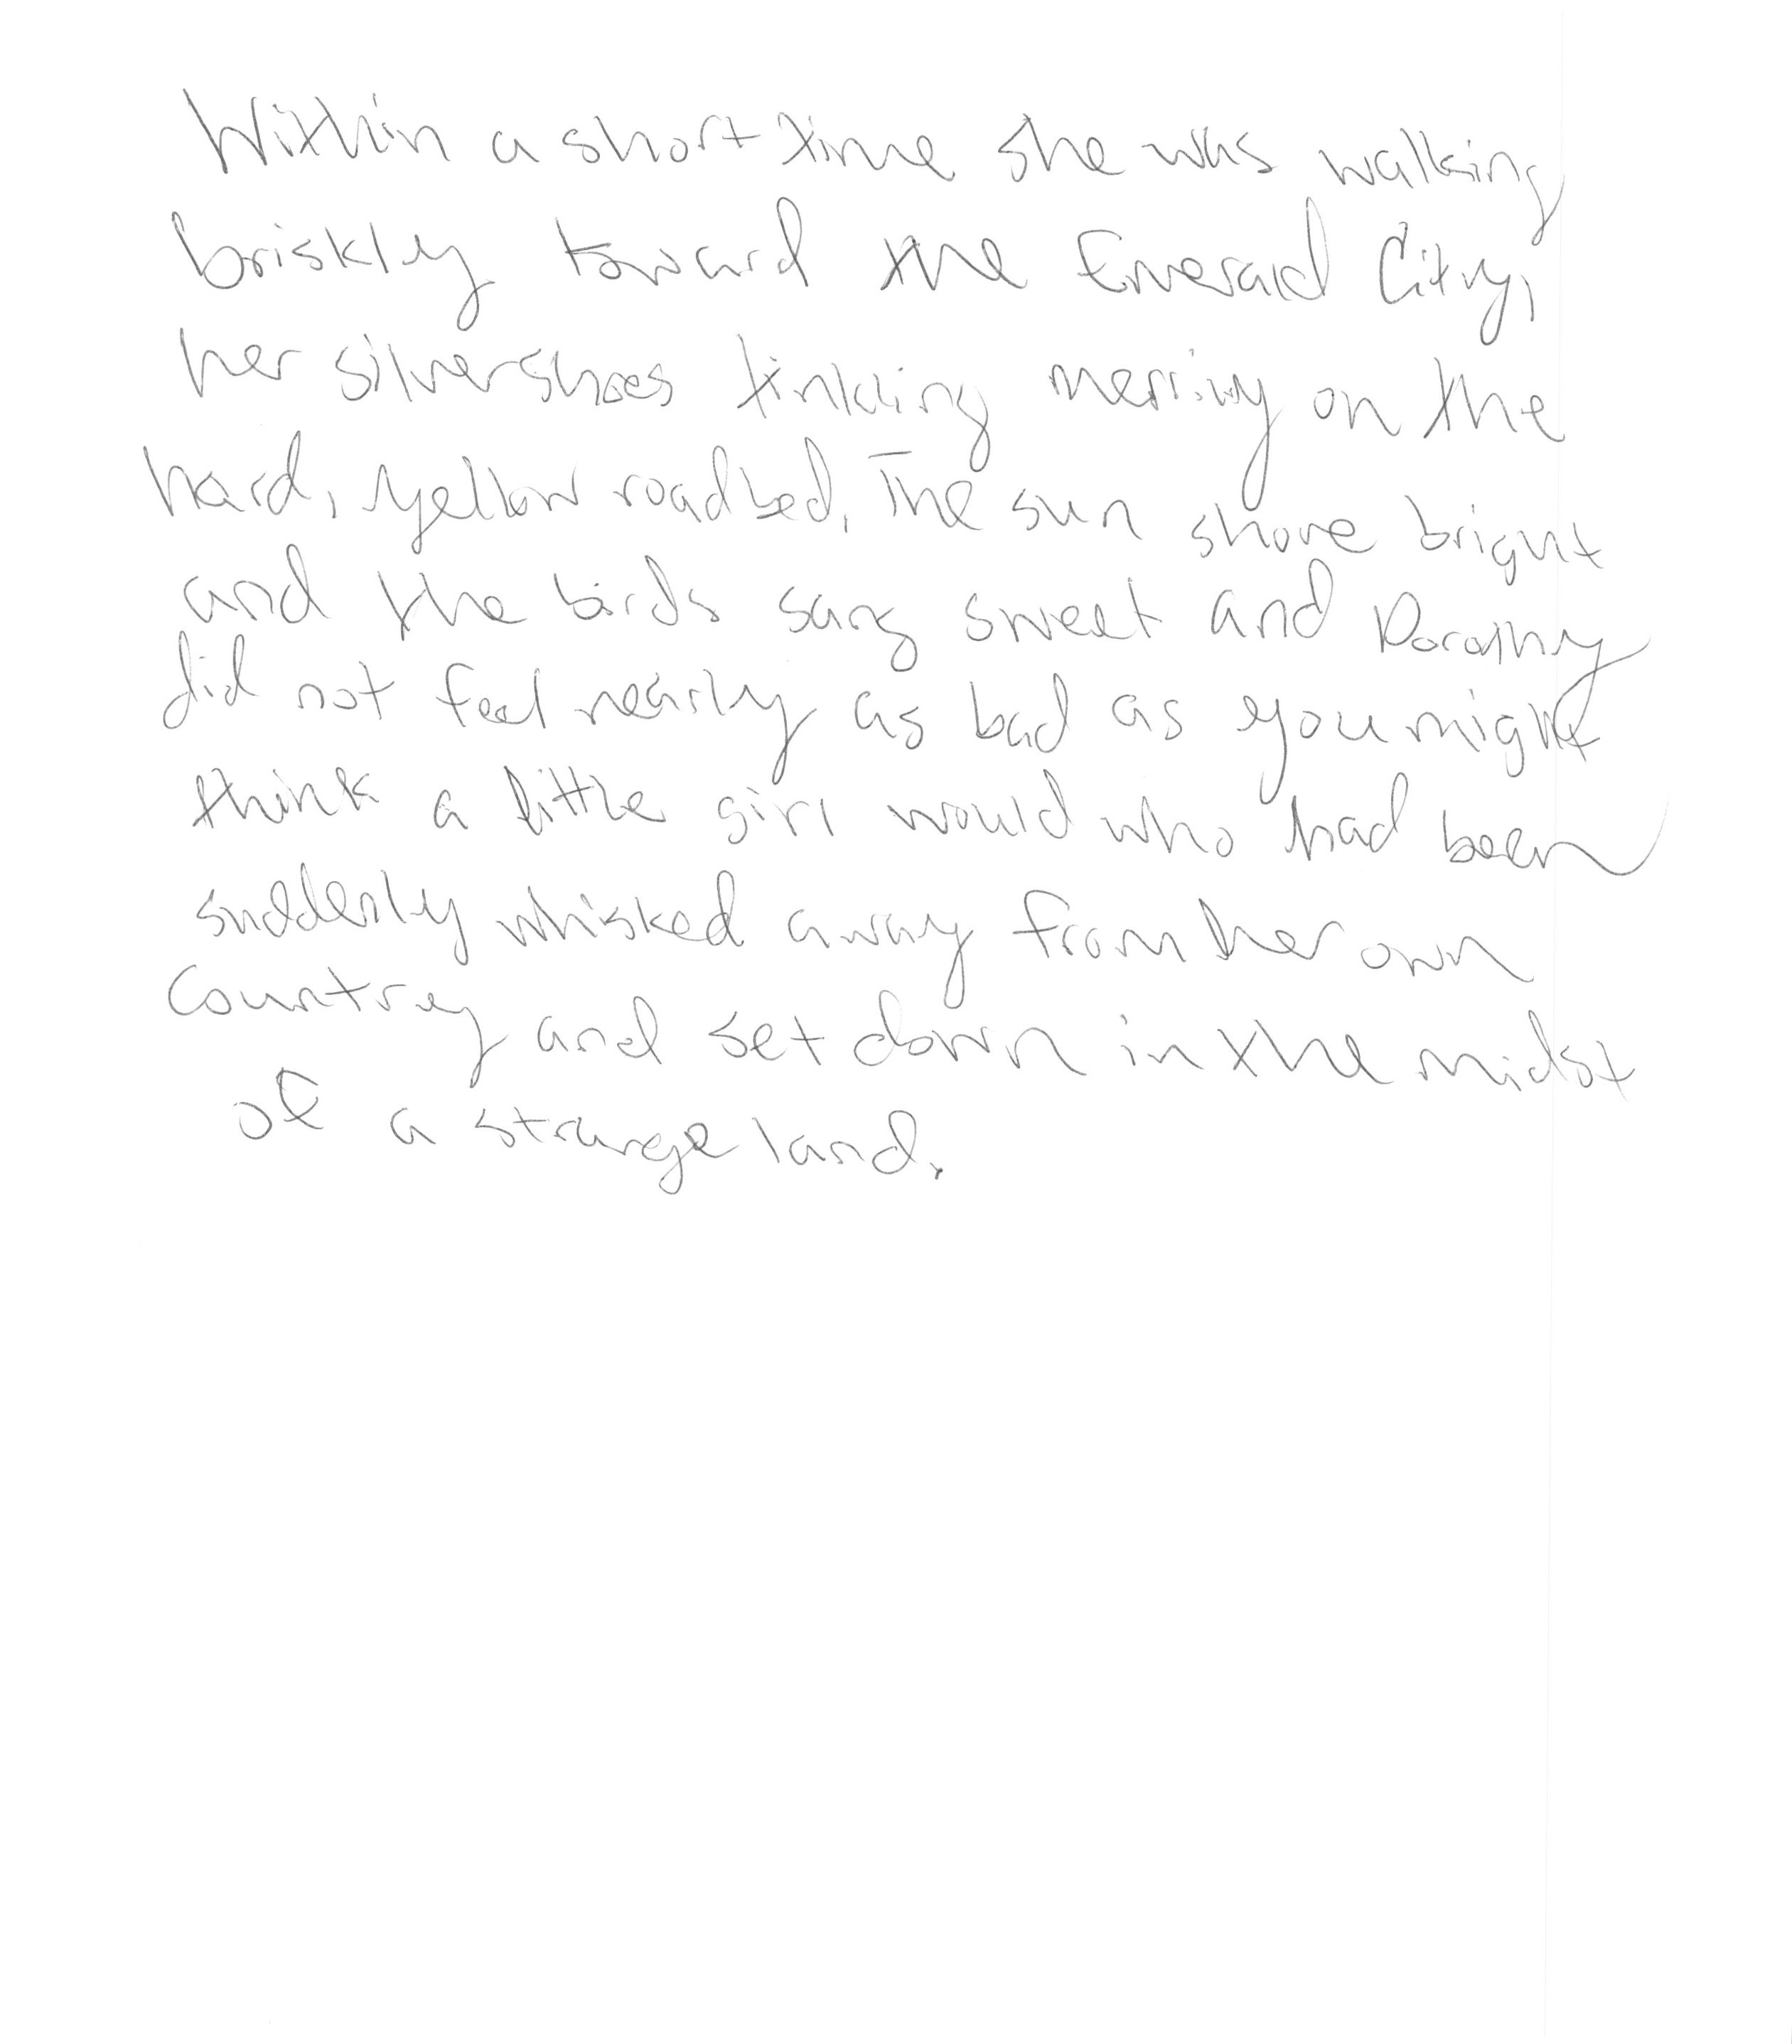 Within a short time she was walking
briskley toward the Emerald City,
her silver shoes tinkling merrily on the
hard, yellow roadbed. The sun shone bright
and the birds sang sweet and Dorothy
did not feel nearly as bad as you might
think a little girl would who had been
suddenly whisked away from her own
country and set down in the midst
of a strange land.